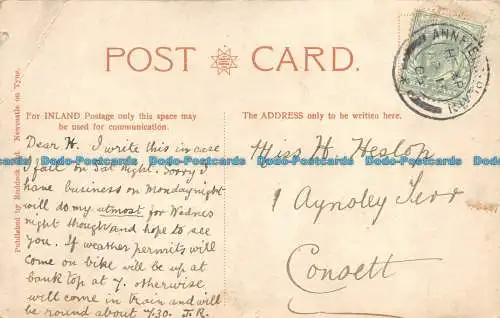 POST CARD.
ANNFIE
For INLAND Postage only this space may
be used for communication.
The ADDRESS only to be written here.
Dear H. I write this in case
I fail on Sat Night. Sorry I
have business on Monday night
will do my utmost for Wednes
night though and hope to see
you. If weather permits will
come on bike will be up at
bank top at 7. otherwise
will come in train and will
be round about 7.30. J.R.
Miss H. Heslop
1 Aynsley Terr
Consett
Published by Ruddock Ltd. Newcastle on Tyne.
www.bidb-bidb.com